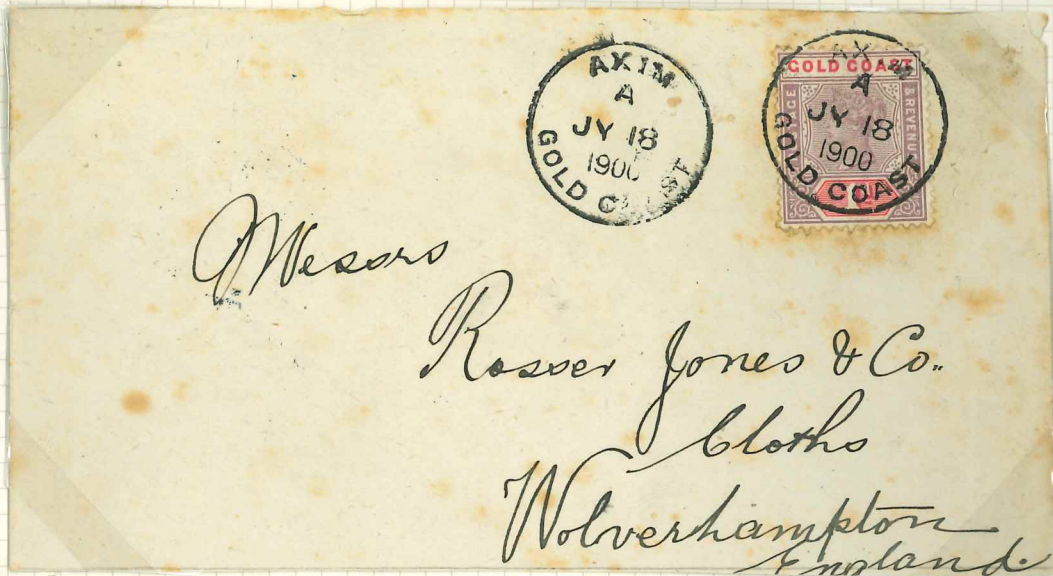 AXIM
A
JY 18
1900
GOLD COAST
GOLD COAST
& REVENUE
AXIM
A
JY 18
1900
GOLD COAST
Messrs
Rosser Jones & Co.
Cloths
Wolverhampton
England.